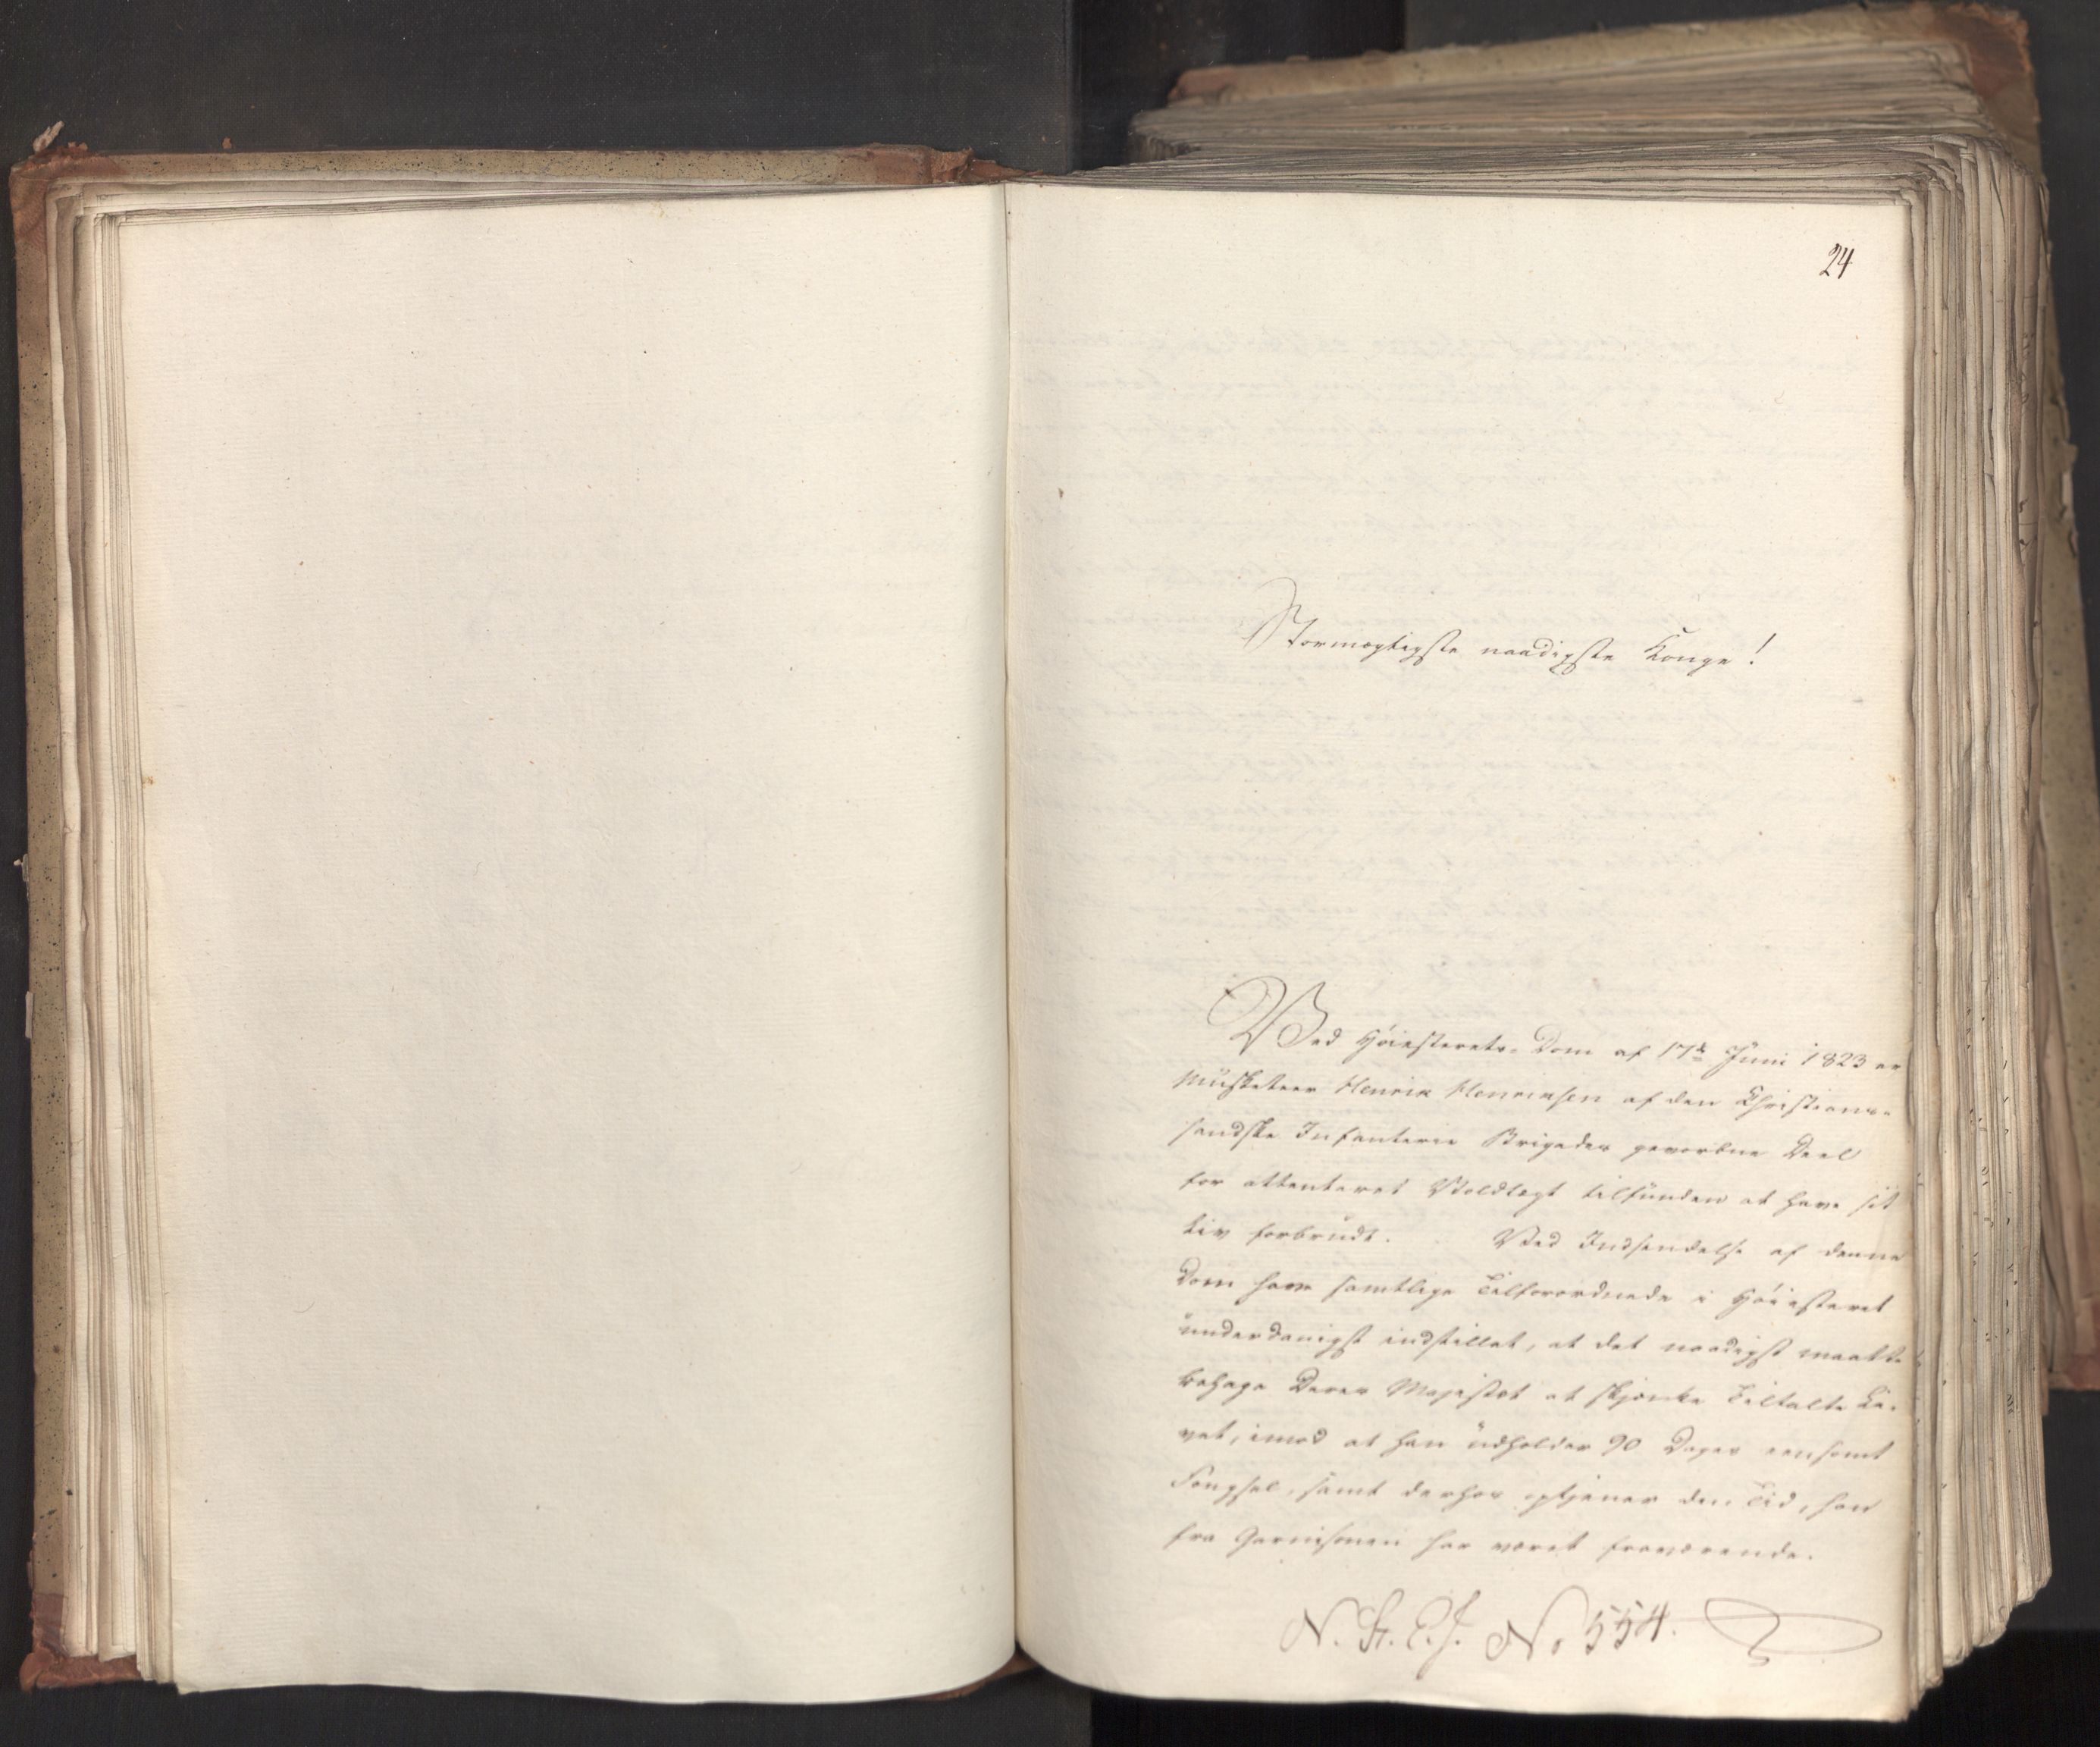 24
Stormægtigste naadigste Konge!
Ved Høiesterets-Dom af 17de Juni 1823 er
Musketeer Henrik Henriksen af den Christian-
sandske Infanterie Brigades gevorbne Deel
for attenteret Voldtægt tilfunden at have sit
Liv forbrudt. Ved Indsendelse af denne
Dom have samtlige Tilforordnede i Høiesteret
underdanigst indstillet, at det naadigst maatte
behage Deres Majestæt at skjænke Tiltalte Li-
vet, imod at han udholder 90 Dages eensomt
Fængsel, samt derhos optjener den Tid, han
fra Garnisonen har været fraværende.
N. St. E. J. No 554.